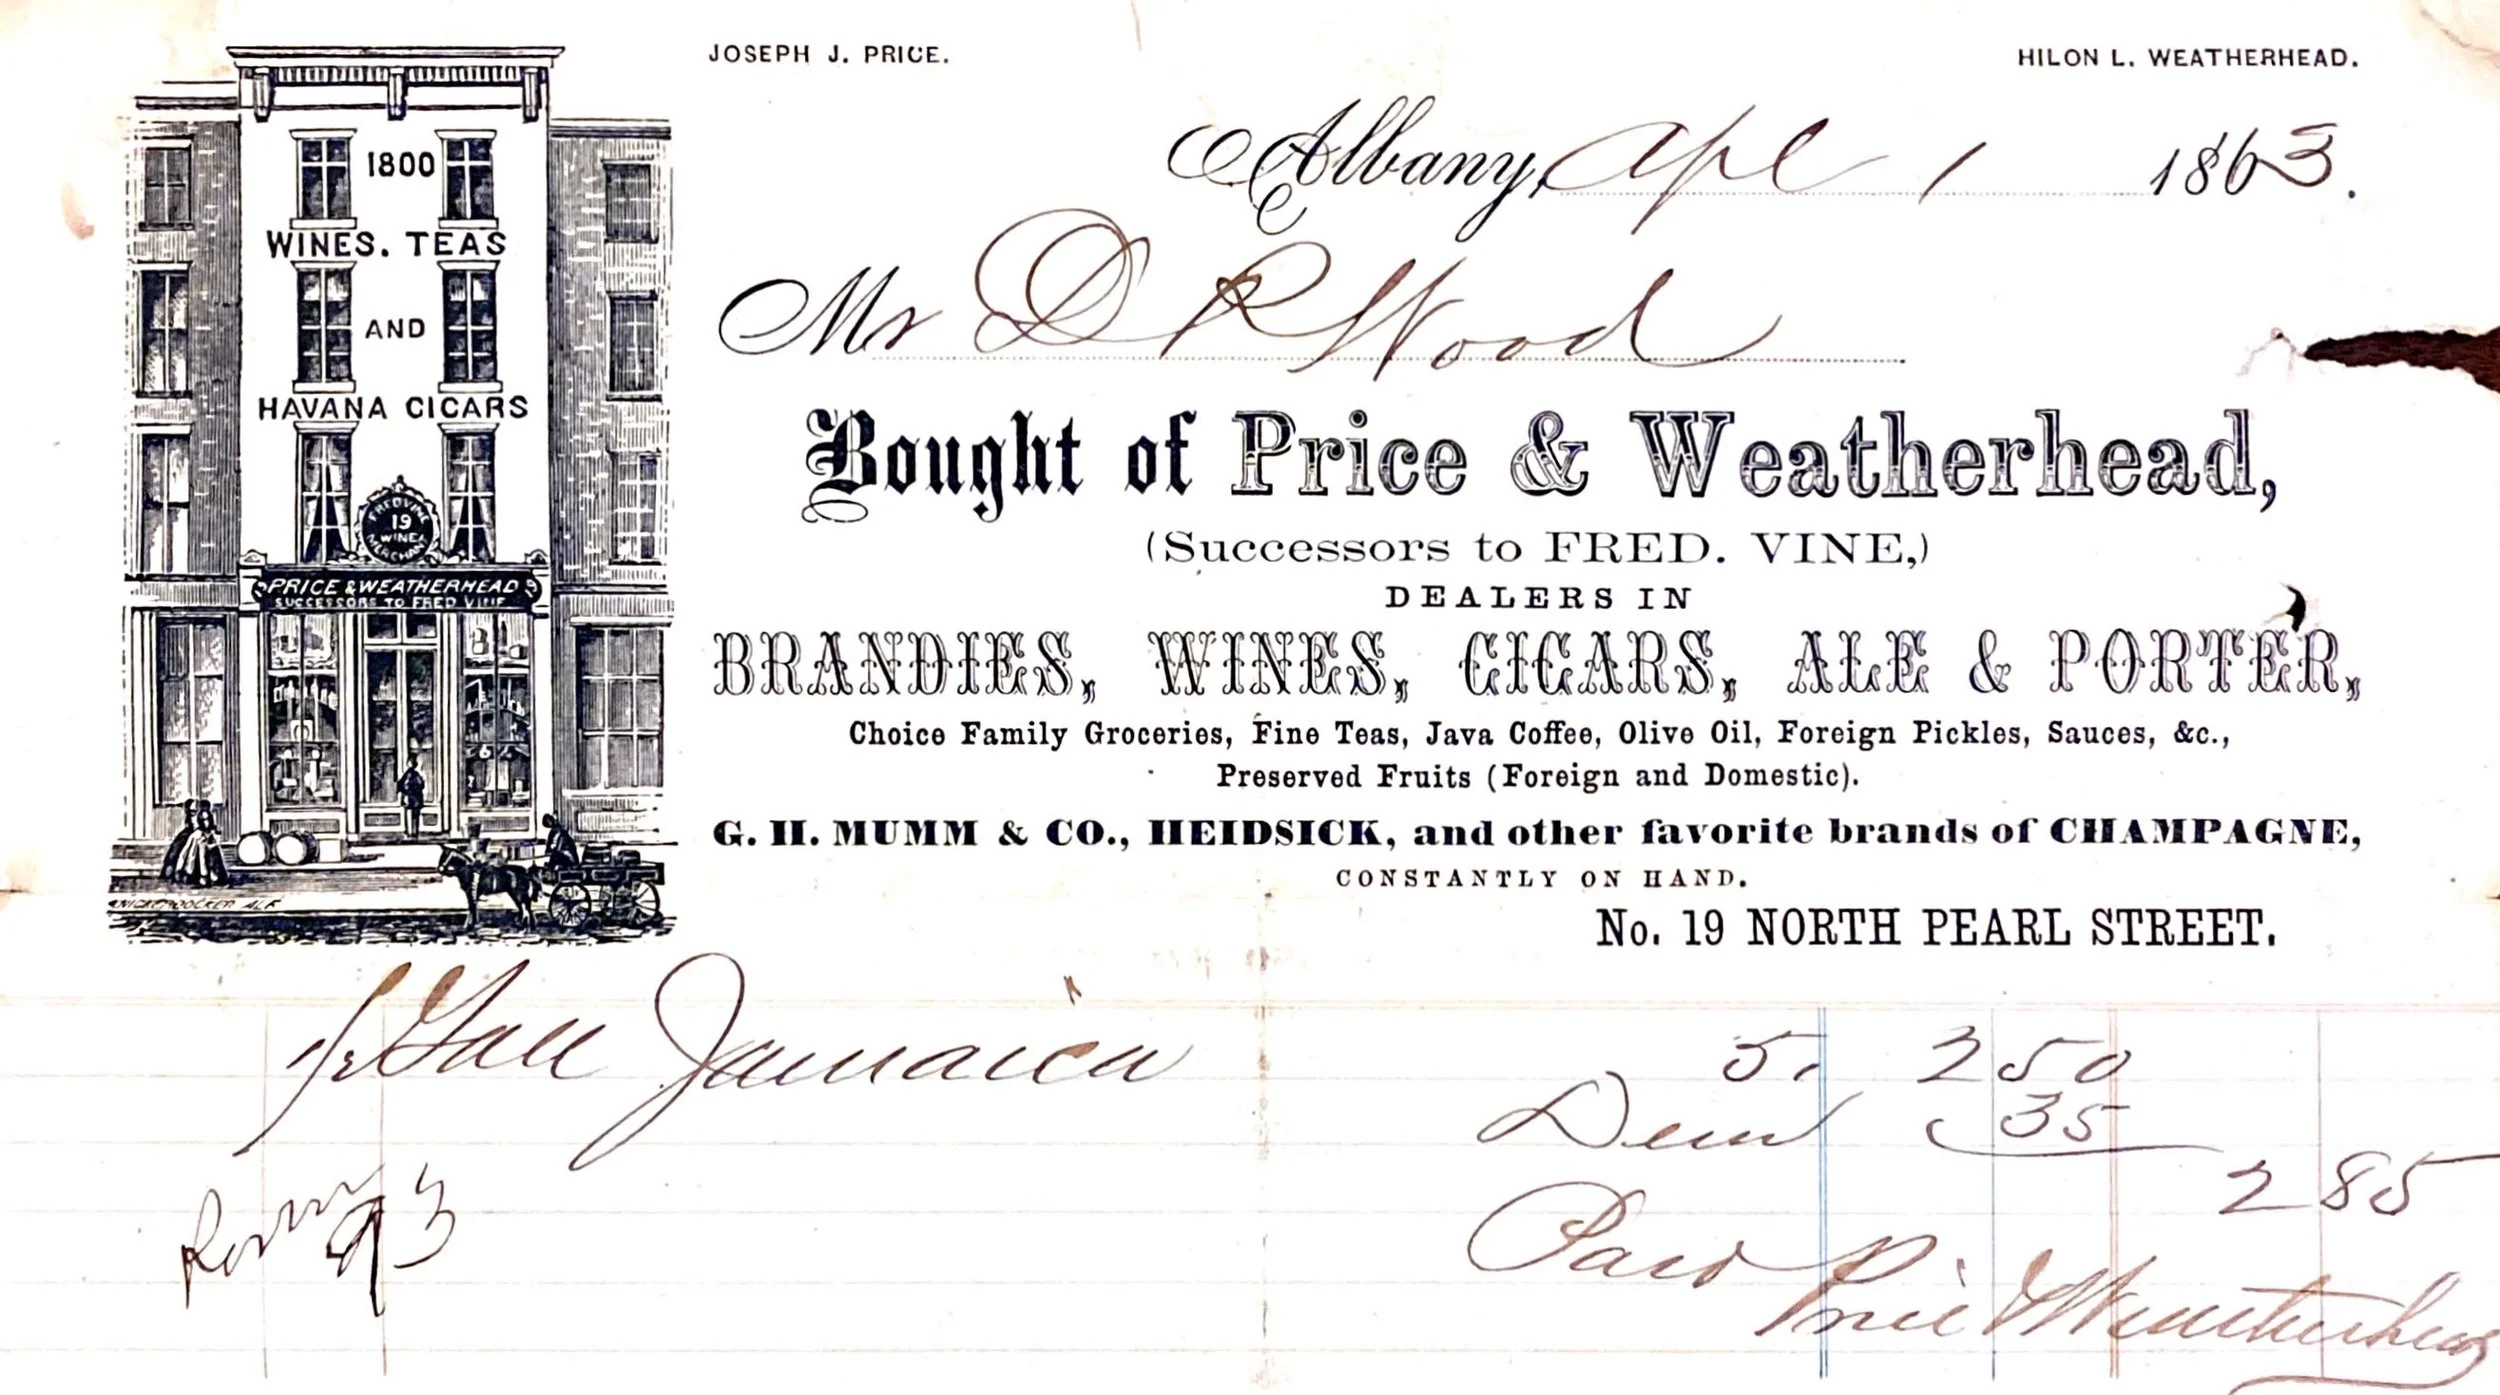 JOSEPH J. PRICE. HILON L. WEATHERHEAD.
Albany, Apl 1 1863.
Mr D R Wood
Bought of Price & Weatherhead,
(Successors to FRED. VINE,)
DEALERS IN
BRANDIES, WINES, CIGARS, ALE & PORTER,
Choice Family Groceries, Fine Teas, Java Coffee, Olive Oil, Foreign Pickles, Sauces, &c.,
Preserved Fruits (Foreign and Domestic).
G. H. MUMM & CO., HEIDSICK, and other favorite brands of CHAMPAGNE,
CONSTANTLY ON HAND.
No. 19 NORTH PEARL STREET.
1800
WINES. TEAS
AND
HAVANA CIGARS
FRED VINE
19
WINE
MERCHANT
PRICE & WEATHERHEAD
SUCCESSORS TO FRED VINE
KNICKERBOCKER ALE
1/2 Gall Jamaica 5. 2 50
Dem 35
2 85
Paid
Price & Weatherhead
93